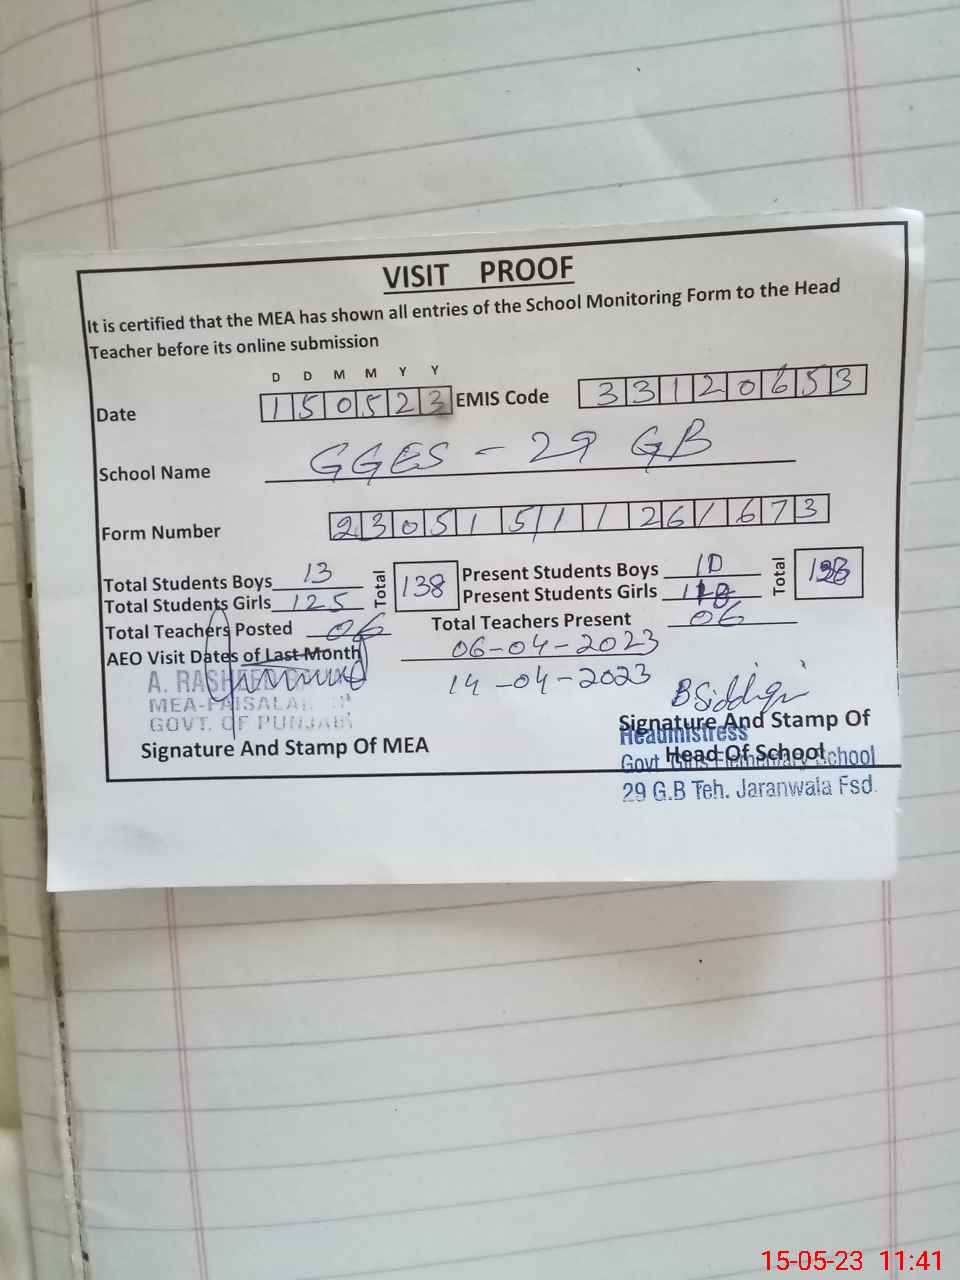 VISIT PROOF
It is certified that the MEA has shown all entries of the School Monitoring Form to the Head
Teacher before its online submission
D D M M Y Y
Date 150523 EMIS Code 33120653
School Name GGES - 29 GB
Form Number 23051511261673
Total Students Boys 13 Total 138 Present Students Boys 10 Total
Total Students Girls 125 Present Students Girls
Total Teachers Posted 06 Total Teachers Present 06
AEO Visit Dates of Last Month 06-04-2023
14-04-2023
A. RASHEED
MEA-FAISALABAD
GOVT. OF PUNJAB
Signature And Stamp Of MEA
BSiddiqi
Signature And Stamp Of
Headmistress
Head Of School
Govt Girls Elementary School
29 G.B Teh. Jaranwala Fsd.
15-05-23 11:41